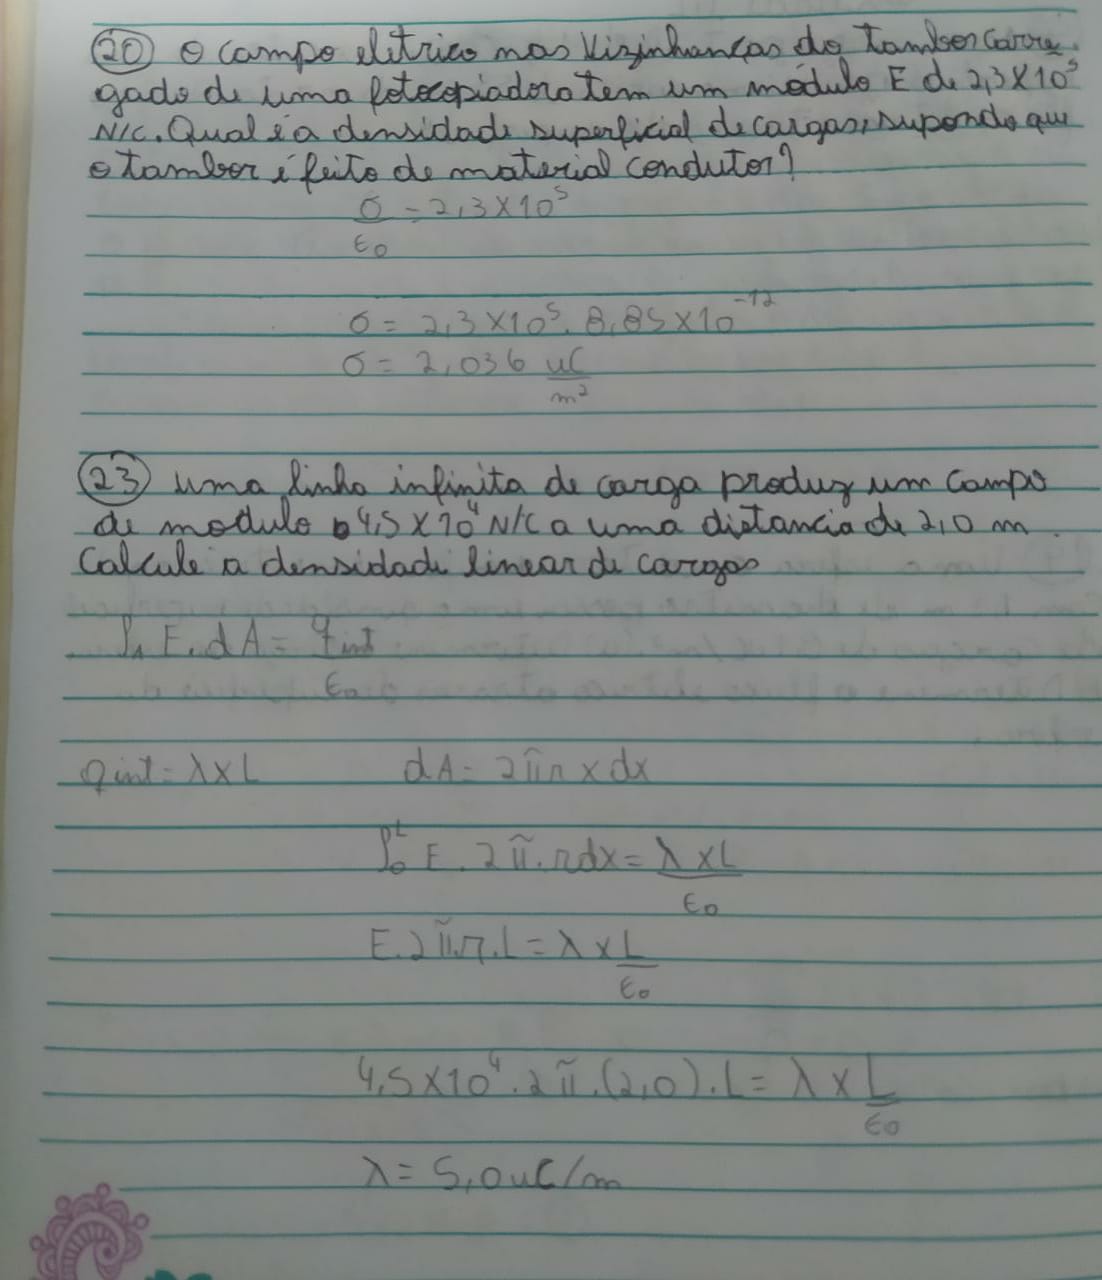 20 O campo eletrico nas vizinhanças do tambor carre
gado de uma fotocopiadora tem um módulo E de 2,3 X 10⁵
N/C. Qual é a densidade superficial de cargas, supondo que
o tambor é feito de material condutor?
σ/ε₀ = 2,3 X 10⁵
σ = 2,3 X 10⁵ . 8,85 X 10⁻¹²
σ = 2,036 uC/m²
23 Uma linha infinita de carga produz um campo
de modulo 4,5 X 10⁴ N/C a uma distancia de 2,0 m.
Calcule a densidade linear de cargas
∫ₐ E. dA = qint/ε₀
qint = λ x L dA = 2πr x dx
∫₀ᴸ E. 2π.rdx = λ x L/ε₀
E.2π.r.L = λ x L/ε₀
4,5 X 10⁴ . 2π.(2,0).L = λ x L/ε₀
λ = 5,0 uC/m